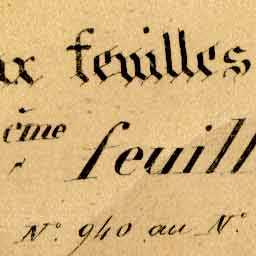 ux feuilles
ème feuill
N° 940 au N°